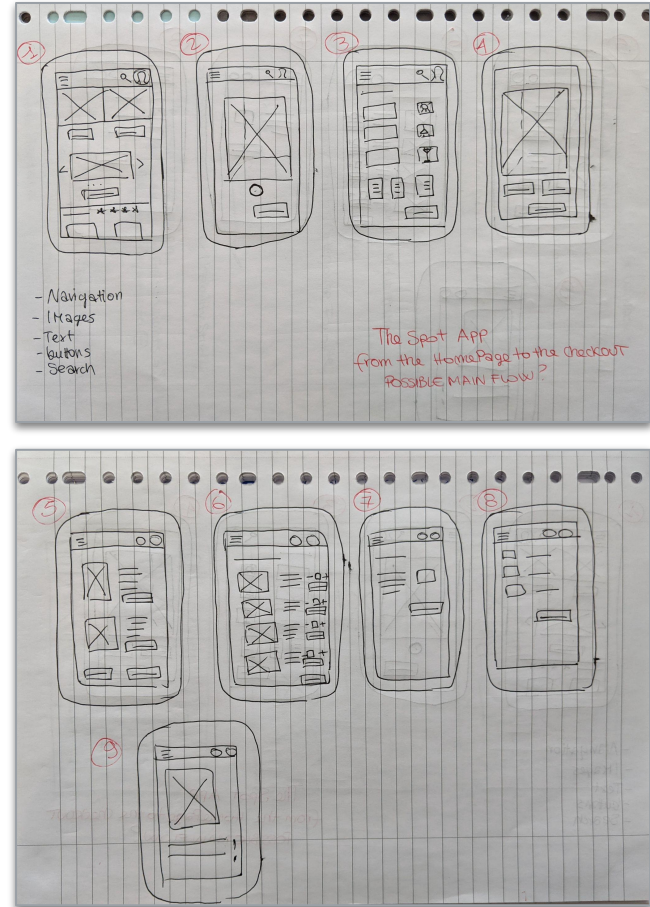 1
2
3
4
- Navigation
- IMages
- Text
- buttons
- Search
The Spot App
from the HomePage to the checkout
POSSIBLE MAIN FLOW?
5
6
7
8
9